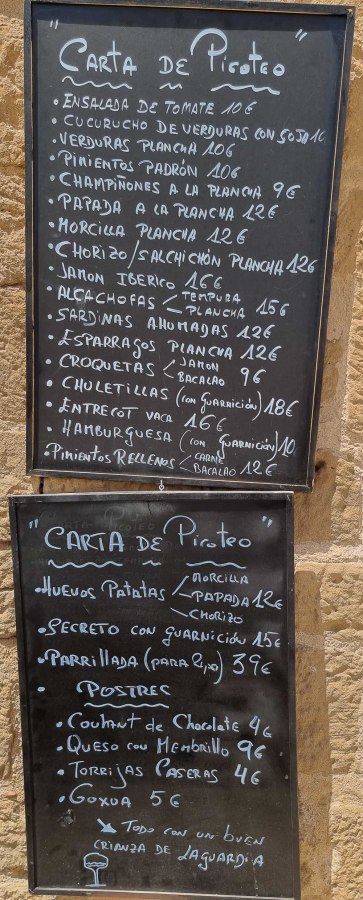 "CARTA DE Picoteo"
• ENSALADA DE TOMATE 10€
• CUCURUCHO DE VERDURAS CON SOJA 10
• VERDURAS PLANCHA 10€
• PIMIENTOS PADRÓN 10€
• CHAMPIÑONES A LA PLANCHA 9€
• PAPADA A LA PLANCHA 12€
• MORCILLA PLANCHA 12€
• CHORIZO/SALCHICHÓN PLANCHA 12€
• JAMON IBERICO 16€
• ALCACHOFAS < TEMPURA PLANCHA 15€
• SARDINAS AHUMADAS 12€
• ESPARRAGOS PLANCHA 12€
• CROQUETAS < JAMON BACALAO 9€
• CHULETILLAS (CON GUARNICIÓN) 18€
• ENTRECOT VACA 16€
• HAMBURGUESA (CON GUARNICIÓN) 10
• PIMIENTOS RELLENOS < CARNE BACALAO 12€
"CARTA DE Picoteo"
• HUEVOS PATATAS < MORCILLA PAPADA CHORIZO 12€
• SECRETO CON GUARNICIÓN 15€
• PARRILLADA (PARA 2 ps) 39€
• POSTRES
• Coulant de Chocolate 4€
• QUESO CON MEMBRILLO 9€
• TORRIJAS CASERAS 4€
• GOXUA 5€
TODO CON UN BUEN
CRIANZA DE LAGUARDIA